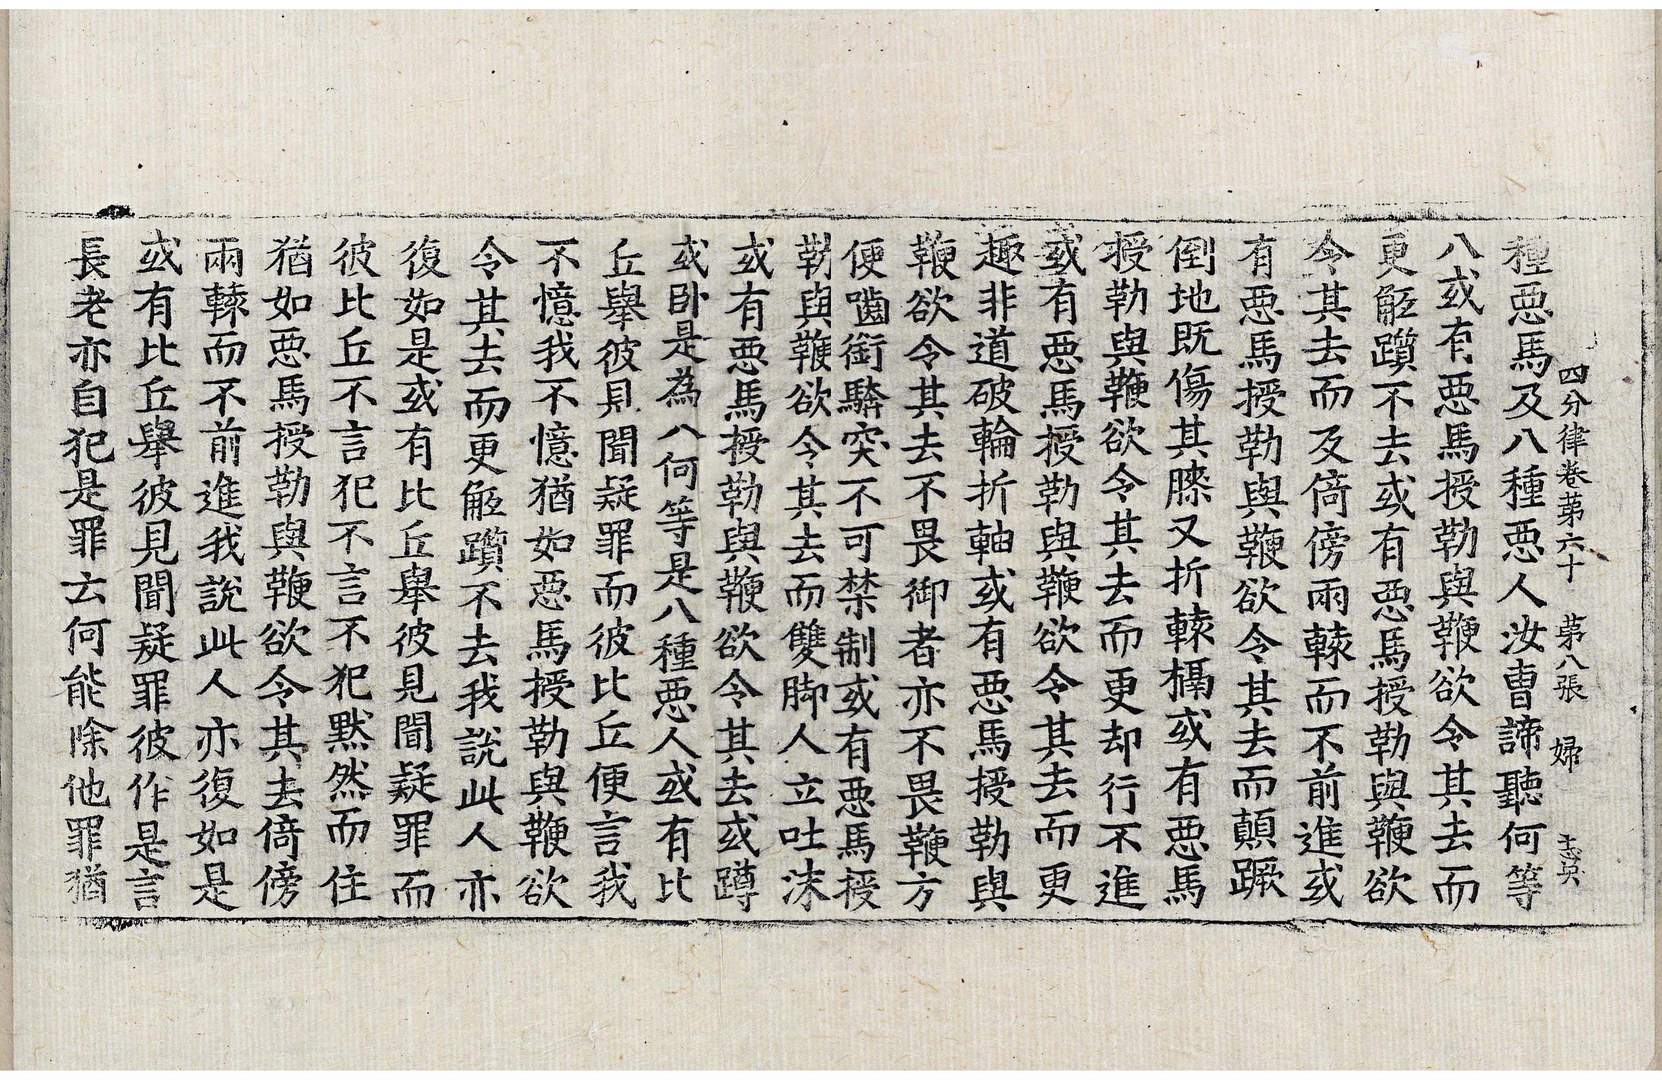 四分律卷第六十 第八張 婦
種惡馬及八種惡人汝曹諦聽何等
八或有惡馬授勒與鞭欲令其去而
更觝躓不去或有惡馬授勒與鞭欲
令其去而反倚傍兩轅而不前進或
有惡馬授勒與鞭欲令其去而顛蹶
倒地既傷其膝又折轅槅或有惡馬
授勒與鞭欲令其去而更却行不進
或有惡馬授勒與鞭欲令其去而更
趣非道破輪折軸或有惡馬授勒與
鞭欲令其去不畏御者亦不畏鞭方
便嚙銜驕突不可禁制或有惡馬授
勒與鞭欲令其去而雙脚人立吐沫
或有惡馬授勒與鞭欲令其去或蹲
或卧是為八何等是八種惡人或有比
丘舉彼見聞疑罪而彼比丘便言我
不憶我不憶猶如惡馬授勒與鞭欲
令其去而更觝躓不去我說此人亦
復如是或有比丘舉彼見聞疑罪而
彼比丘不言犯不言不犯黙然而住
猶如惡馬授勒與鞭欲令其去倚傍
兩轅而不前進我說此人亦復如是
或有比丘舉彼見聞疑罪彼作是言
長老亦自犯是罪云何能除他罪猶